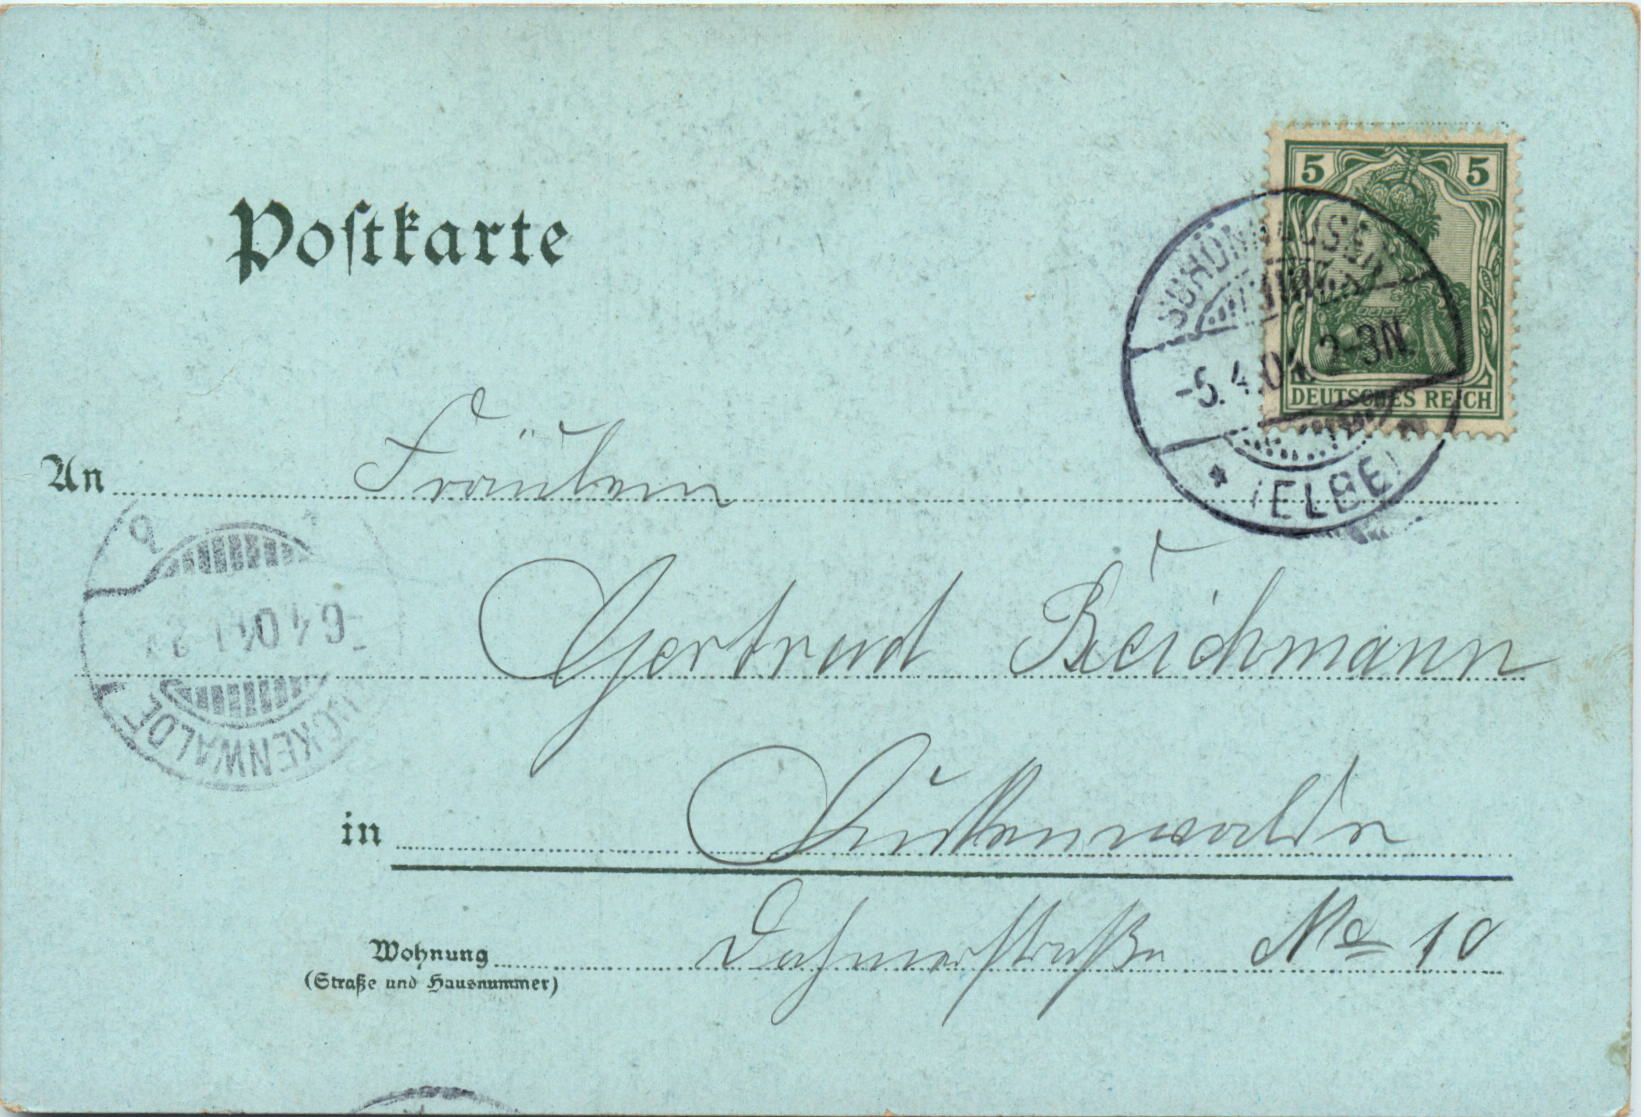 Postkarte
5 5
SCHÖNHAUSEN
-5.4.04. 2-3N.
* (ELBE)
DEUTSCHES REICH
An Fräulein
Gertrud Reichmann
LUCKENWALDE
-6.4.04.
in Luckenwalde
Wohnung Dahmerstraße No 10
(Straße und Hausnummer)